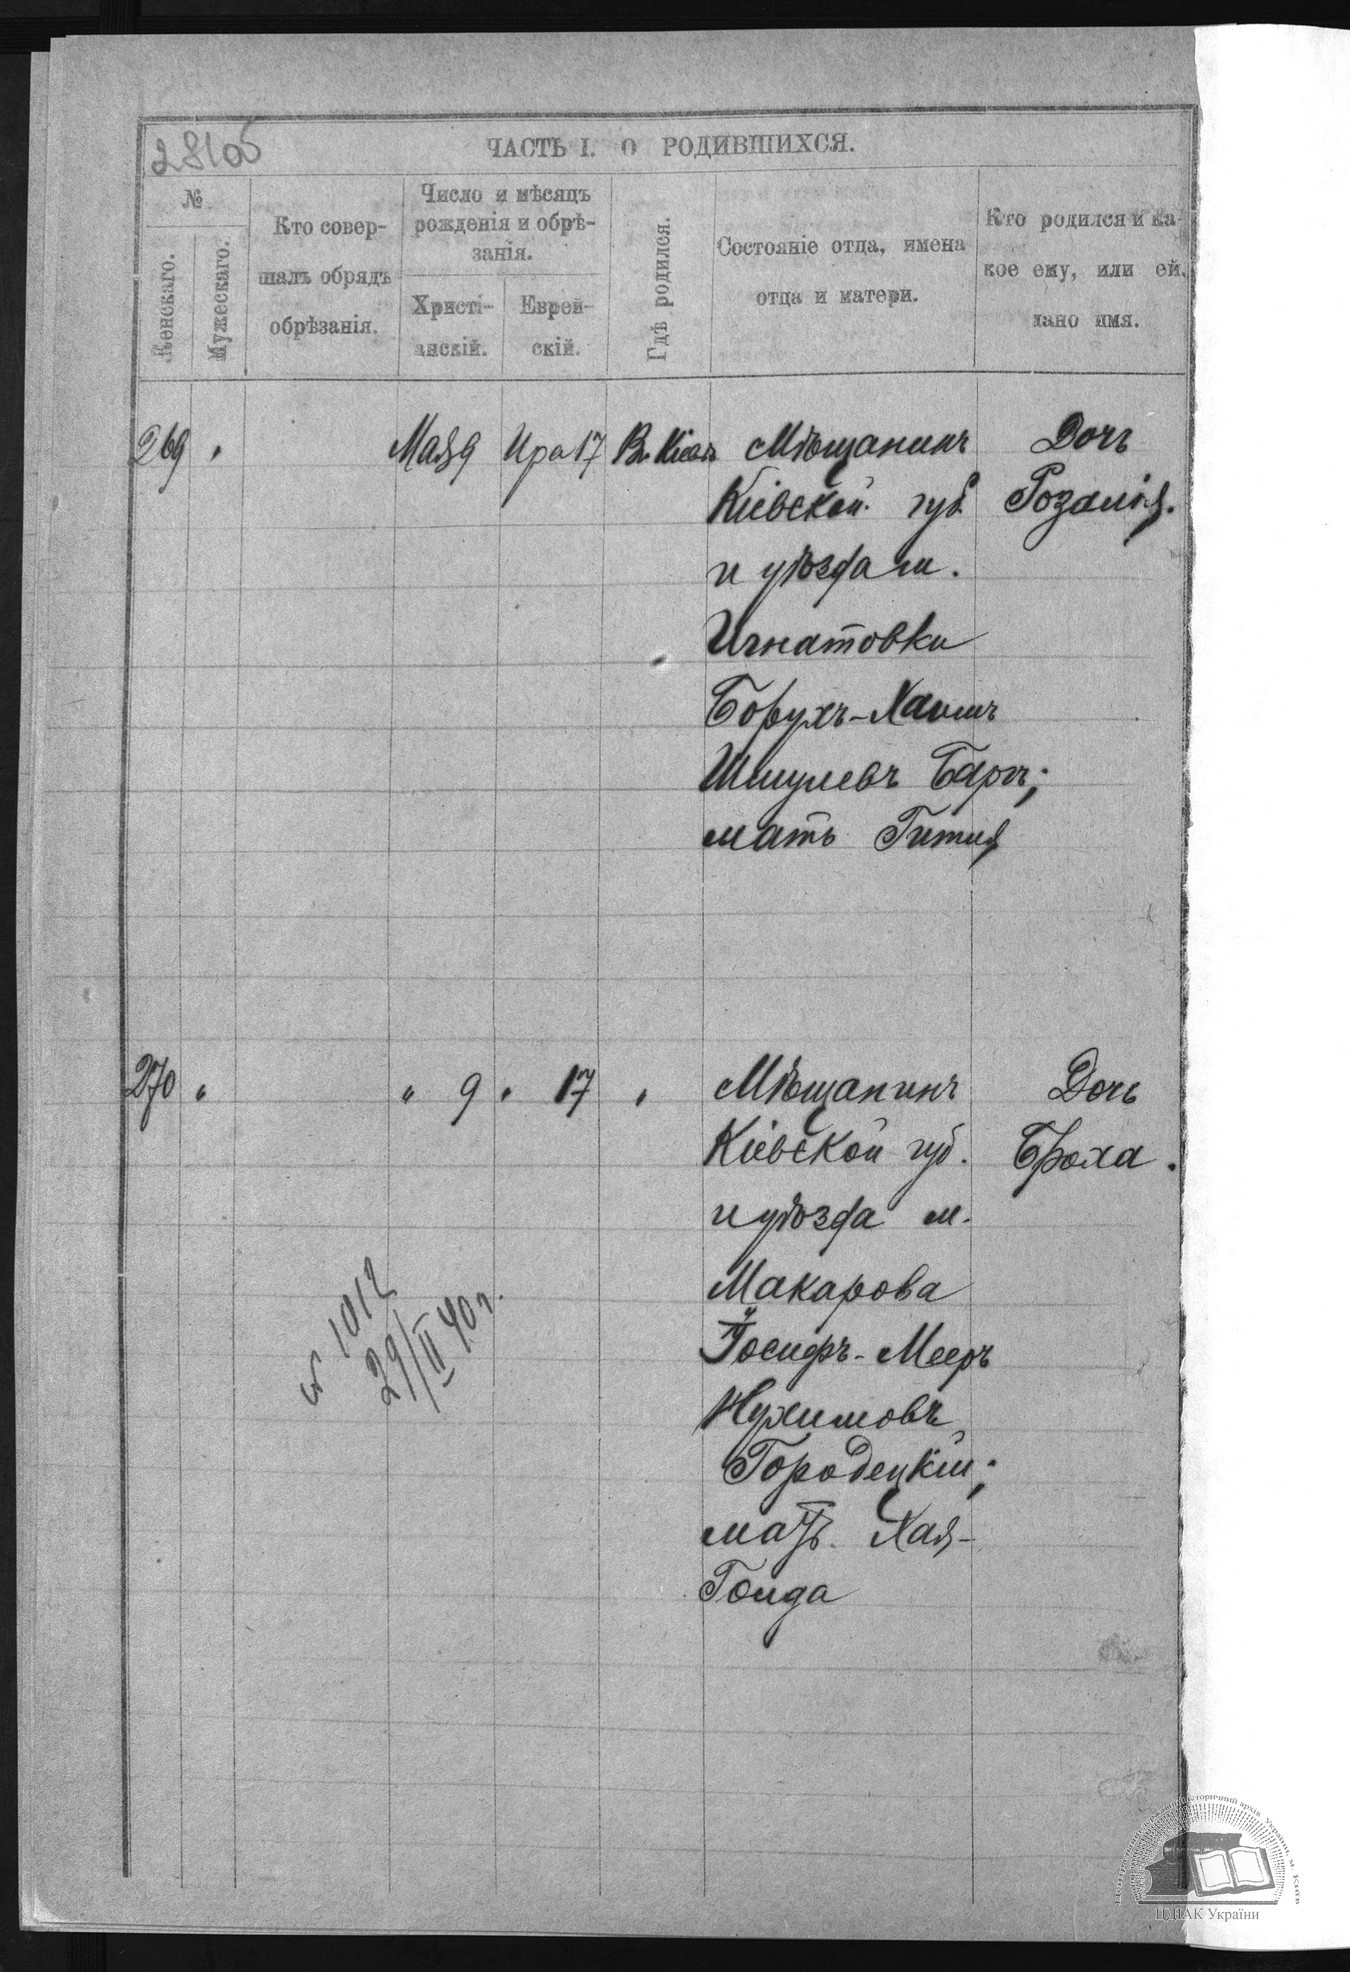 28 об
ЧАСТЬ I. О РОДИВШИХСЯ.
№
Женскаго.
Мужескаго.
Кто совер-
шалъ обрядъ
обрѣзанія.
Число и мѣсяцъ
рожденія и обрѣ-
занія.
Христі-
анскій.
Еврей-
скій.
Гдѣ родился.
Состояніе отца, имена
отца и матери.
Кто родился и ка-
кое ему, или ей,
дано имя.
269 " Мая 9 Ира 17 Въ Кіевѣ Мѣщанинъ Дочь
Кіевской губ. Розалія.
и уѣзда м.
Игнатовки
Борухъ-Хаимъ
Шмулевъ
мать Гитля
270 " " 9 " 17 " Мѣщанинъ Дочь
Кіевской губ. Броха.
и уѣзда м.
Макарова
Іосифъ-Мееръ
Нухимовъ
Городецкій;
мать Хая-
Голда
№ 1012
29/II 40 г.
ЦДІАК України